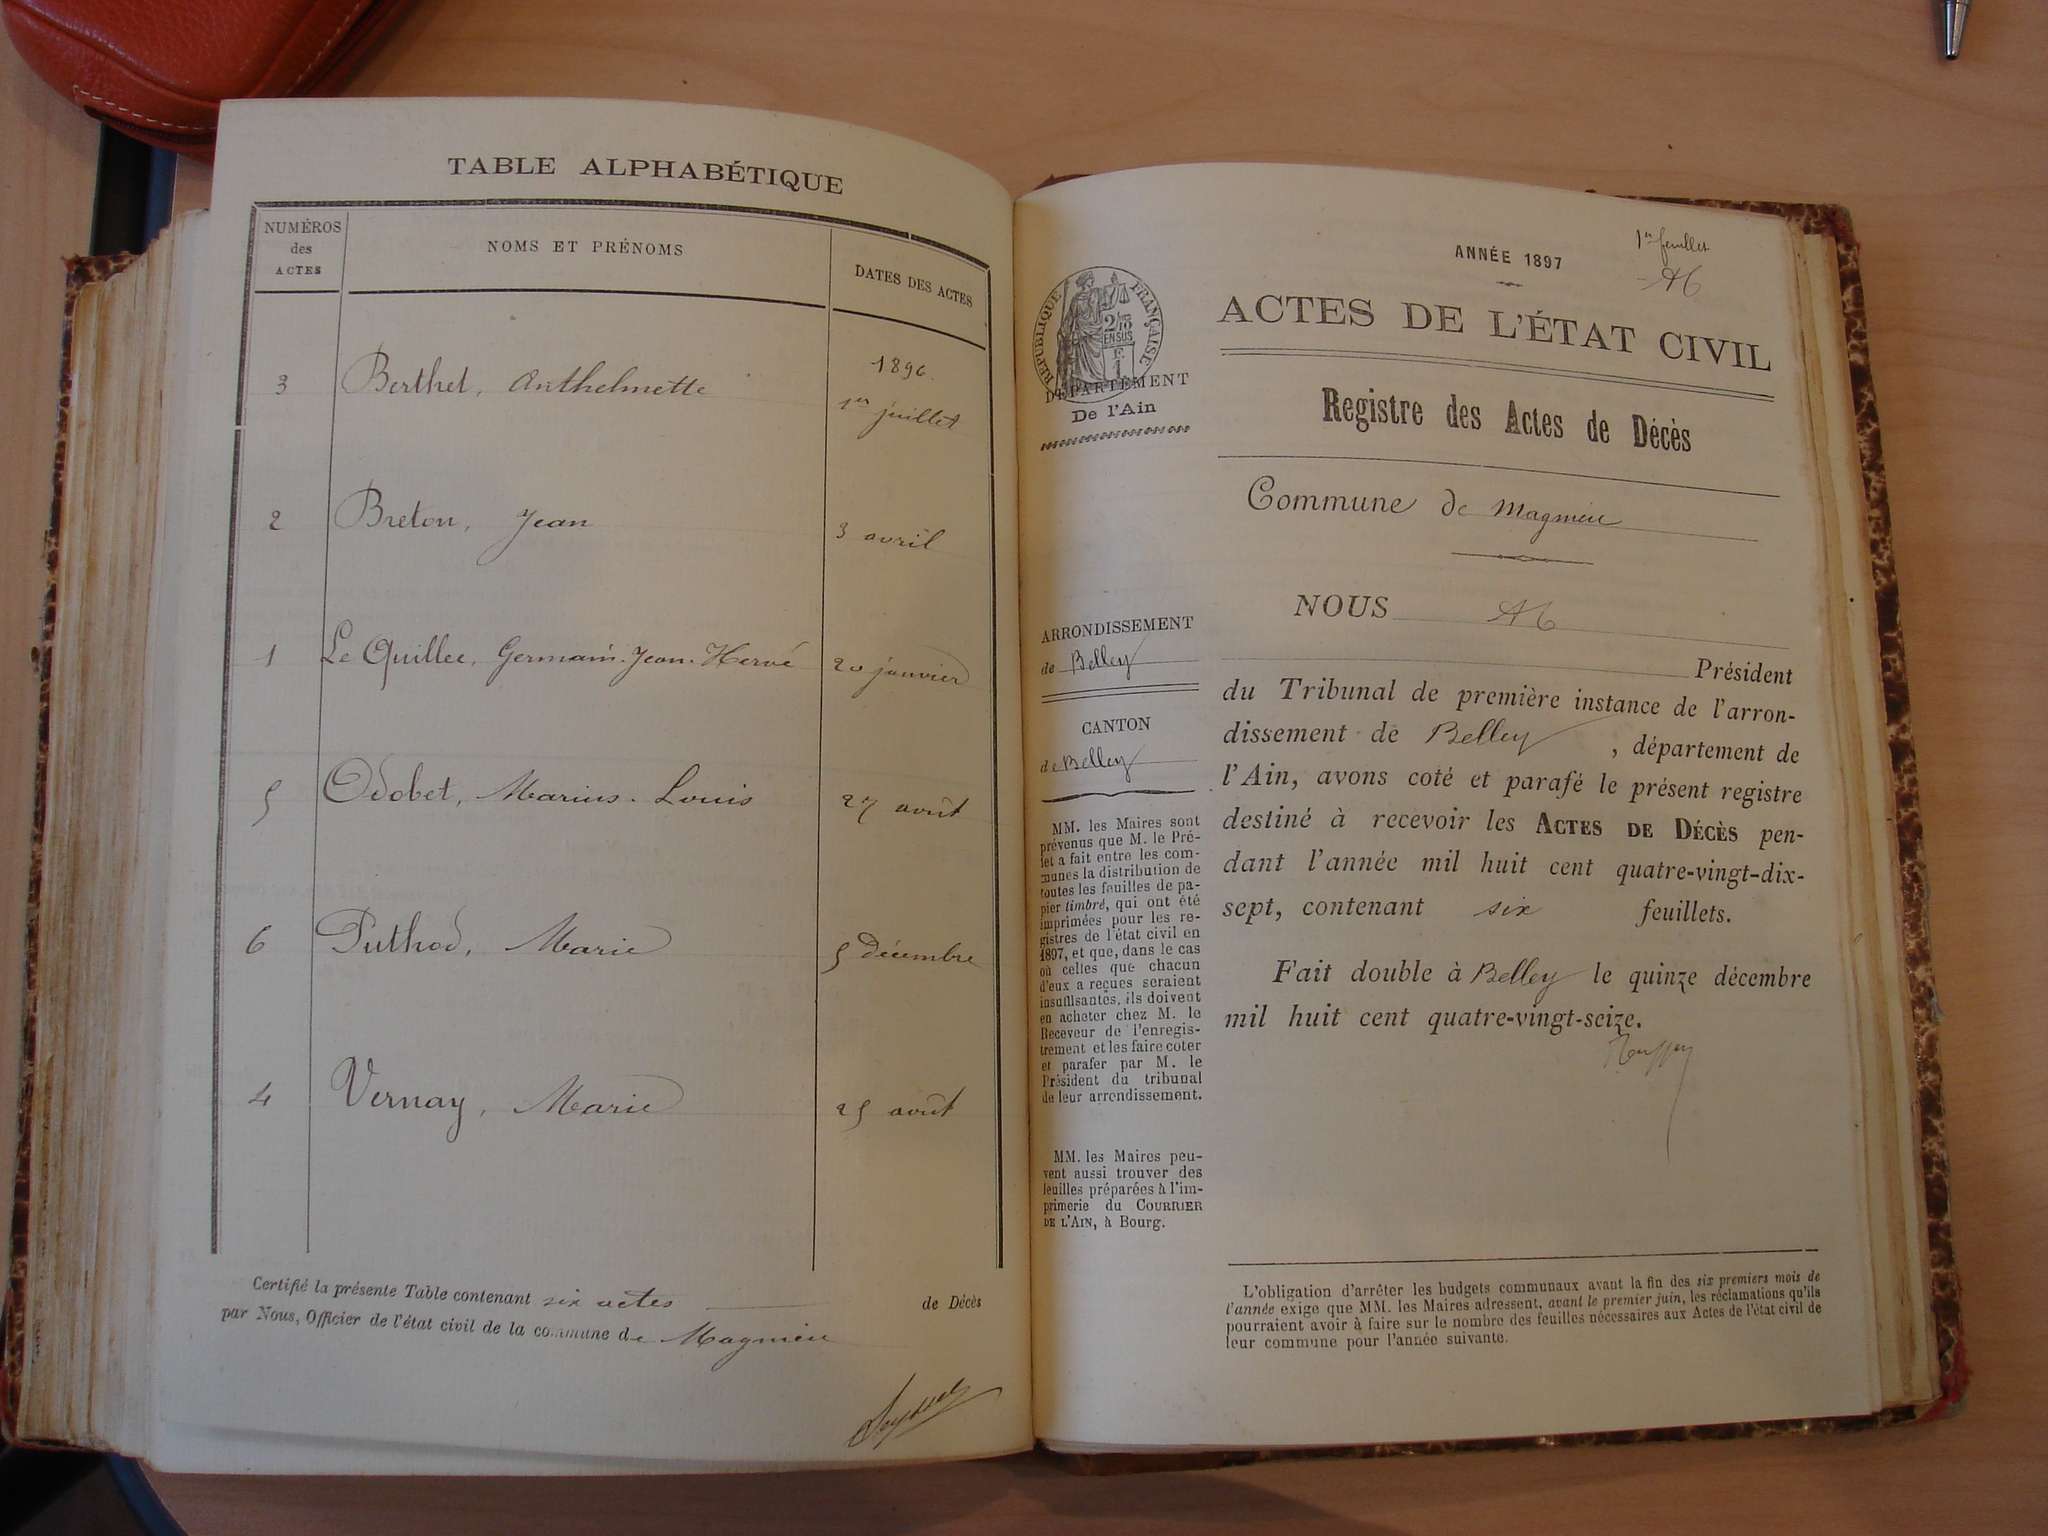 TABLE ALPHABÉTIQUE
NUMÉROS des ACTES
NOMS ET PRÉNOMS
DATES DES ACTES
1896.
3 Berthet, Anthelmette 1er juillet
2 Breton, Jean 3 avril
1 Le Quillec, Germain-Jean-Hervé 20 janvier
5 Odobet, Marius-Louis 27 août
6 Puthod, Marie 5 Décembre
4 Vernay, Marie 25 août
Certifié la présente Table contenant six actes de Décès
par Nous, Officier de l'état civil de la commune de Magnieu
1er feuillet
ANNÉE 1897
ACTES DE L'ÉTAT CIVIL
Registre des Actes de Décès
Commune de Magnieu
RÉPUBLIQUE FRANÇAISE
2/10 EN SUS
DÉPARTEMENT
De l'Ain
ARRONDISSEMENT
de Belley
CANTON
de Belley
MM. les Maires sont
prévenus que M. le Pré-
fet a fait entre les com-
munes la distribution de
toutes les feuilles de pa-
pier timbré, qui ont été
imprimées pour les re-
gistres de l'état civil en
1897, et que, dans le cas
où celles que chacun
d'eux a reçues seraient
insuffisantes, ils doivent
en acheter chez M. le
Receveur de l'enregis-
trement et les faire coter
et parafer par M. le
Président du tribunal
de leur arrondissement.
MM. les Maires peu-
vent aussi trouver des
feuilles préparées à l'im-
primerie du COURRIER
DE L'AIN, à Bourg.
NOUS
Président
du Tribunal de première instance de l'arron-
dissement de Belley, département de
l'Ain, avons coté et parafé le présent registre
destiné à recevoir les ACTES DE DÉCÈS pen-
dant l'année mil huit cent quatre-vingt-dix-
sept, contenant six feuillets.
Fait double à Belley le quinze décembre
mil huit cent quatre-vingt-seize.
L'obligation d'arrêter les budgets communaux avant la fin des six premiers mois de
l'année exige que MM. les Maires adressent, avant le premier juin, les réclamations qu'ils
pourraient avoir à faire sur le nombre des feuilles nécessaires aux Actes de l'état civil de
leur commune pour l'année suivante.